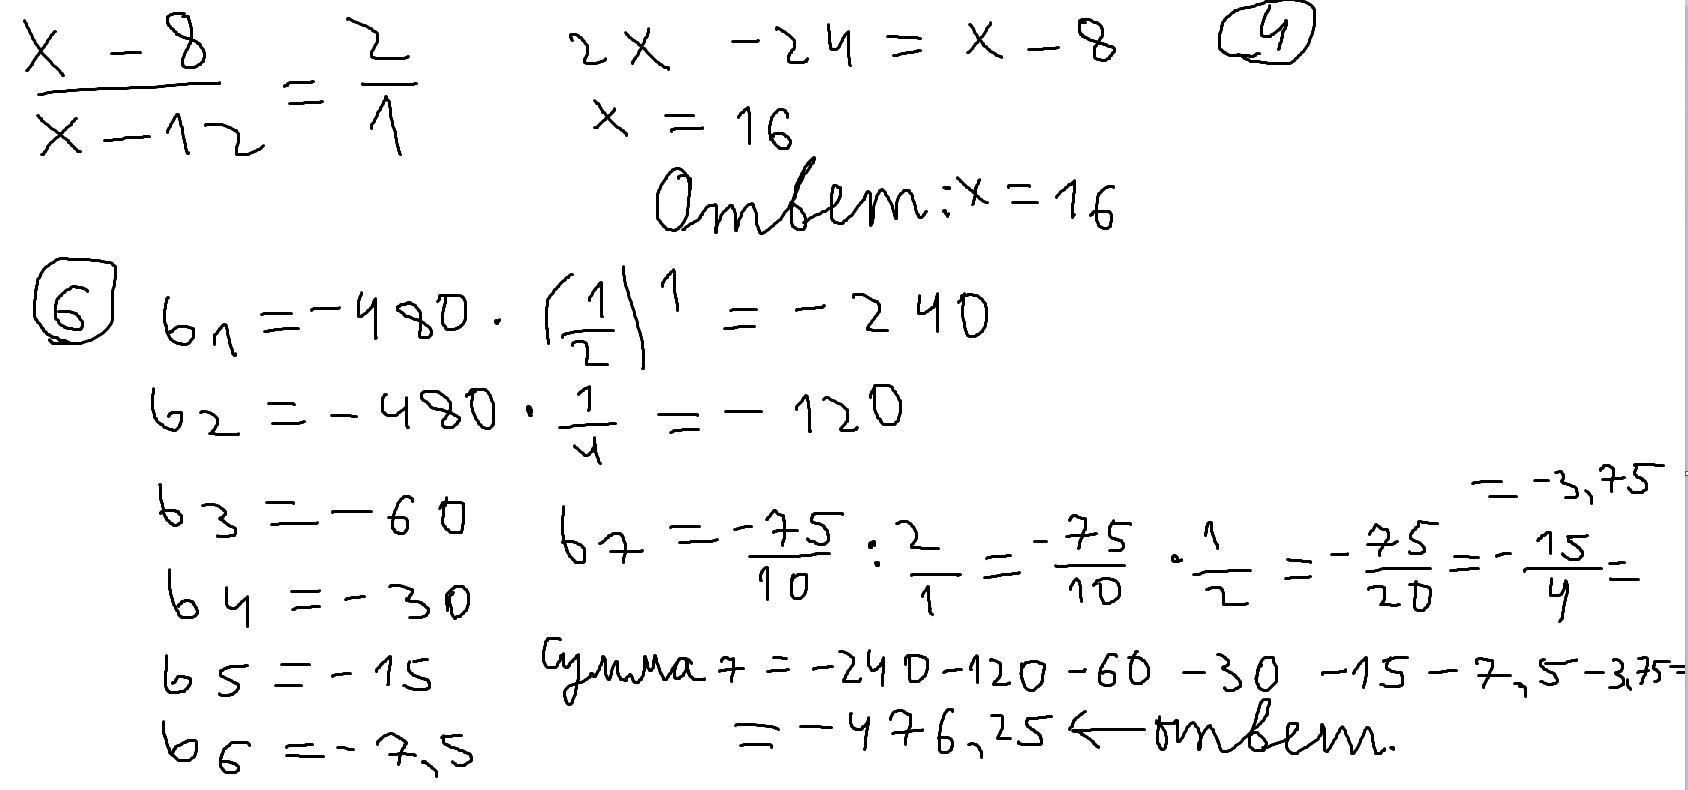 (x - 8)/(x - 12) = 2/1
2x - 24 = x - 8 (4)
x = 16
Ответ: x = 16
(6) b1 = -480 · (1/2)^1 = -240
b2 = -480 · 1/4 = -120
b3 = -60
b4 = -30
b5 = -15
b6 = -7,5
b7 = -75/10 : 2/1 = -75/10 · 1/2 = -75/20 = -15/4 =
= -3,75
Сумма 7 = -240 -120 -60 -30 -15 -7,5 -3,75 =
= -476,25 ← ответ.